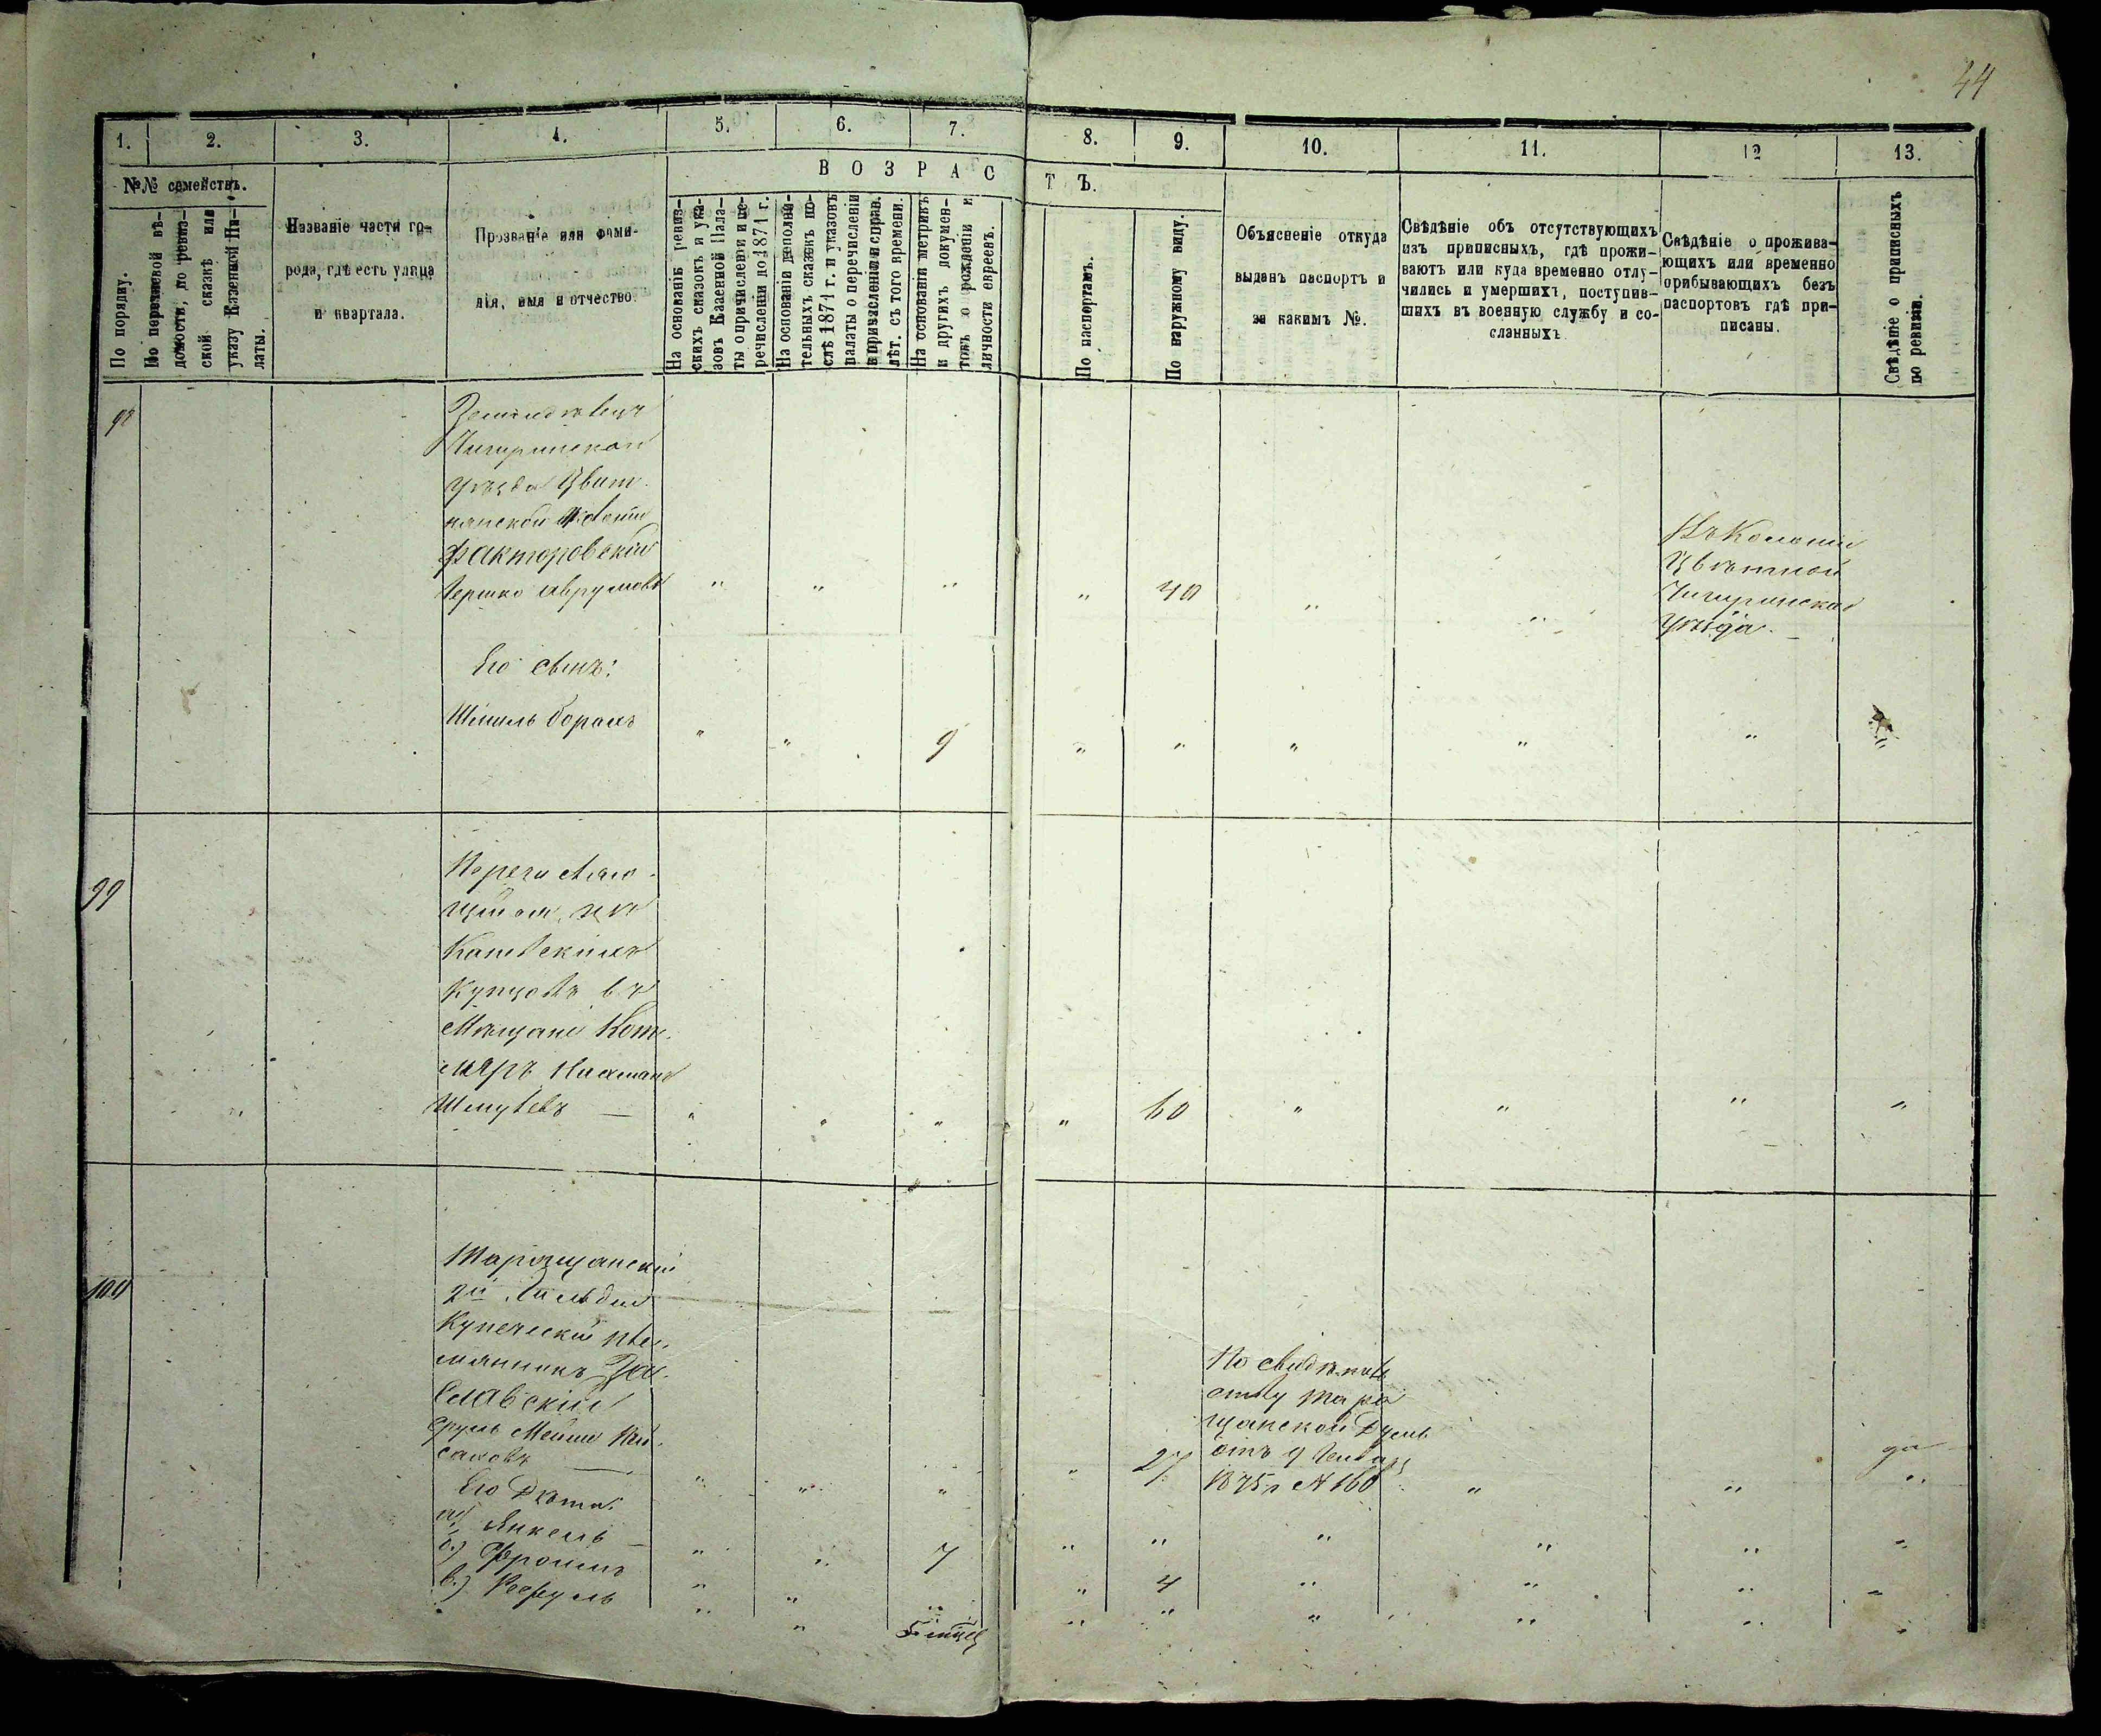 44
1. 2. 3. 4. 5. 6. 7. 8. 9. 10. 11. 12 13.
№№ семействъ.
В О З Р А С Т Ъ.
По порядку.
По перечневой вѣ-
домости, по ревиз-
ской сказкѣ или
указу Казенной Па-
латы.
Названіе части го-
рода, гдѣ есть улица
и квартала.
Прозваніе или фами-
лія, имя и отчество.
На основаніи ревиз-
скихъ сказокъ и ука-
зовъ Казенной Пала-
ты о причисленіи и пе-
речисленіи до 1871 г.
На основаніи дополни-
тельныхъ сказокъ по-
слѣ 1871 г. и указовъ
палаты о перечисленіи
и причисленіи и справ.
лѣт. съ того времени.
На основаніи метрикъ
и другихъ докумен-
товъ о рожденіи и
личности евреевъ.
По паспортамъ.
По наружному виду.
Объясненіе откуда
выданъ паспортъ и
за какимъ №.
Свѣдѣніе объ отсутствующихъ
изъ приписныхъ, гдѣ прожи-
ваютъ или куда временно отлу-
чились и умершихъ, поступив-
шихъ въ военную службу и со-
сланныхъ
Свѣдѣніе о прожива-
ющихъ или временно
прибывающихъ безъ
паспортовъ гдѣ при-
писаны.
Свѣдѣніе о приписныхъ
по ревизіи.
98
Земледѣлецъ
Чигиринскаго
уѣзда Цвѣт-
нянской Колоніи
Факторовскій
Гершко Аврумовъ " " " " 40 " "
Въ Колоніи
Цвѣтной
Чигиринскаго
уѣзда.
Его сынъ:
Шмиль Борохъ " " 9 " " " " " "
99
Перечисляю-
щійся изъ
Каневскихъ
Купцовъ въ
Мѣщане Кот-
ляръ Нисманъ
Шмулевъ — " " " " 60 " " " "
100
Таращанскій
2й Гильдіи
Купеческій пле-
мянникъ Зас-
лавскій
Сруль Мейше
саковъ — " " " " 27
По свидѣтель
ству Тара
щанской Думы
отъ 9 Января
1875 г №160 " " да
Его Дѣти:
а) Янкель — " " 7 " " " " " "
б.) Фроимъ " " " " 4 " " " "
в.) Рефуль " " 5 мѣсяц " " " " "